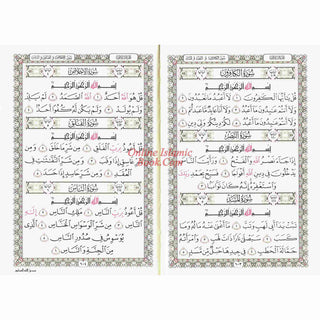 سورة الكافرون
بسم الله الرحمن الرحيم
قل يأيها الكفرون ١ لا أعبد ما تعبدون ٢
ولا أنتم عبدون ما أعبد ٣ ولا أنا عابد ما عبدتم ٤
ولا أنتم عبدون ما أعبد ٥ لكم دينكم ولي دين ٦
سورة النصر
بسم الله الرحمن الرحيم
إذا جاء نصر الله والفتح ١ ورأيت الناس
يدخلون في دين الله أفواجا ٢ فسبح بحمد ربك
واستغفره إنه كان توابا ٣
سورة المسد
بسم الله الرحمن الرحيم
تبت يدا أبي لهب وتب ١ ما أغنى عنه ماله وما
كسب ٢ سيصلى نارا ذات لهب ٣ وامرأته
حمالة الحطب ٤ في جيدها حبل من مسد ٥
سورة الإخلاص
بسم الله الرحمن الرحيم
قل هو الله أحد ١ الله الصمد ٢ لم يلد
ولم يولد ٣ ولم يكن له كفوا أحد ٤
سورة الفلق
بسم الله الرحمن الرحيم
قل أعوذ برب الفلق ١ من شر ما خلق ٢ ومن
شر غاسق إذا وقب ٣ ومن شر النفثت في
العقد ٤ ومن شر حاسد إذا حسد ٥
سورة الناس
بسم الله الرحمن الرحيم
قل أعوذ برب الناس ١ ملك الناس ٢ إله
الناس ٣ من شر الوسواس الخناس ٤ الذي
يوسوس في صدور الناس ٥
من الجنة والناس ٦
Online Islamic
Book.Com